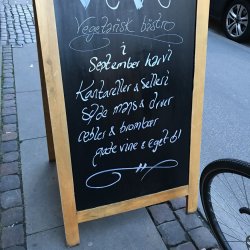 Vegetarisk bistro
i
September kørvi
Kantareller & Selleri
Søde majs & druer
æbler & brombær
gode vine & eget øl